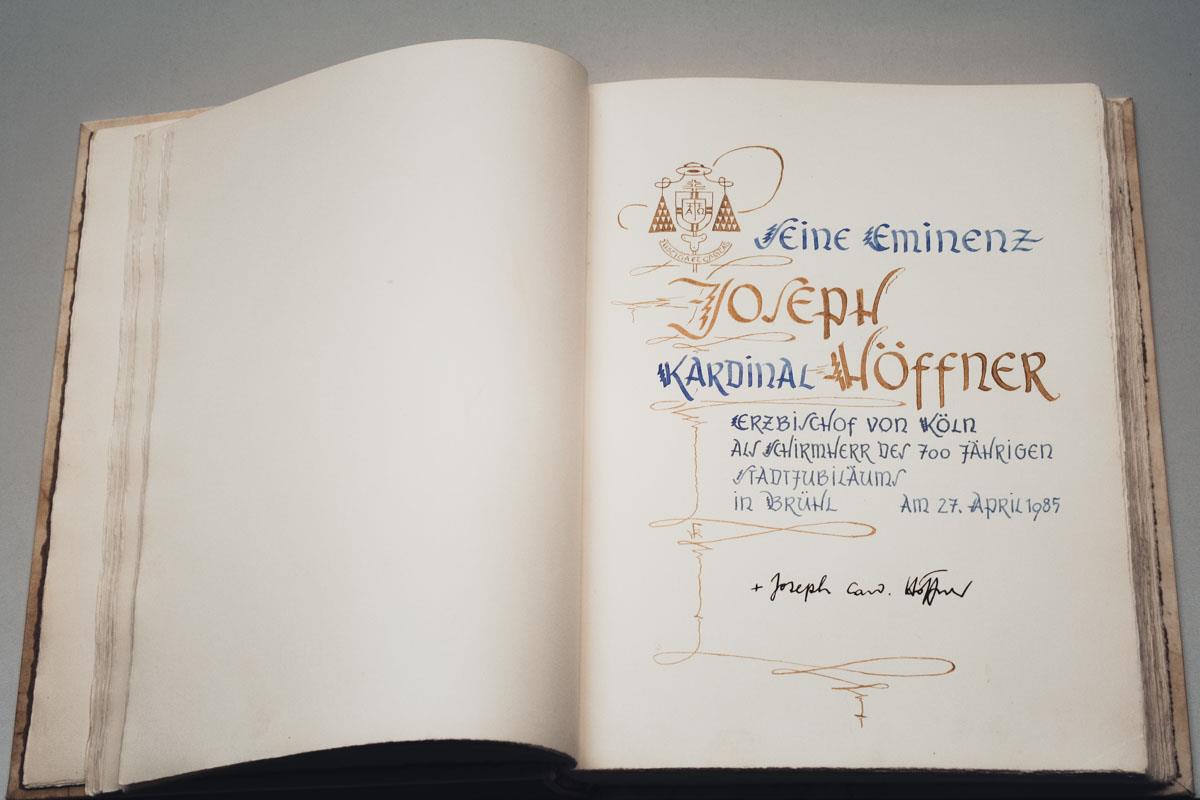 Seine Eminenz
Joseph
Kardinal Höffner
Erzbischof von Köln
als Schirmherr des 700 jährigen
Stadtjubiläums
in Brühl am 27. April 1985
+ Joseph Card. Höffner